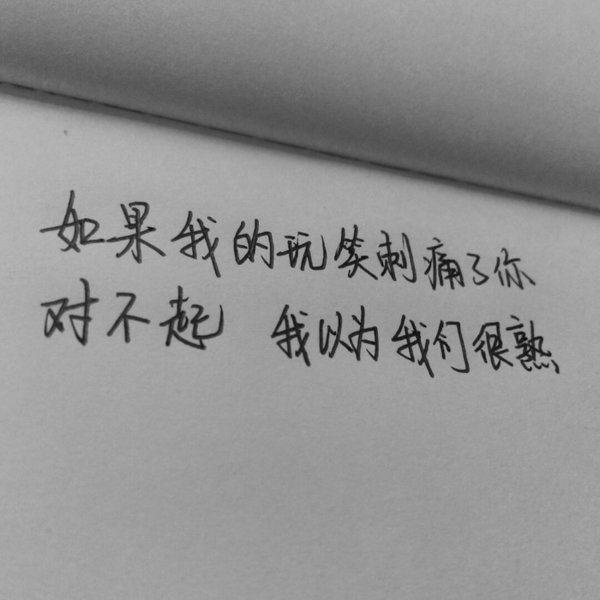 如果我的玩笑刺痛了你
对不起 我以为我们很熟